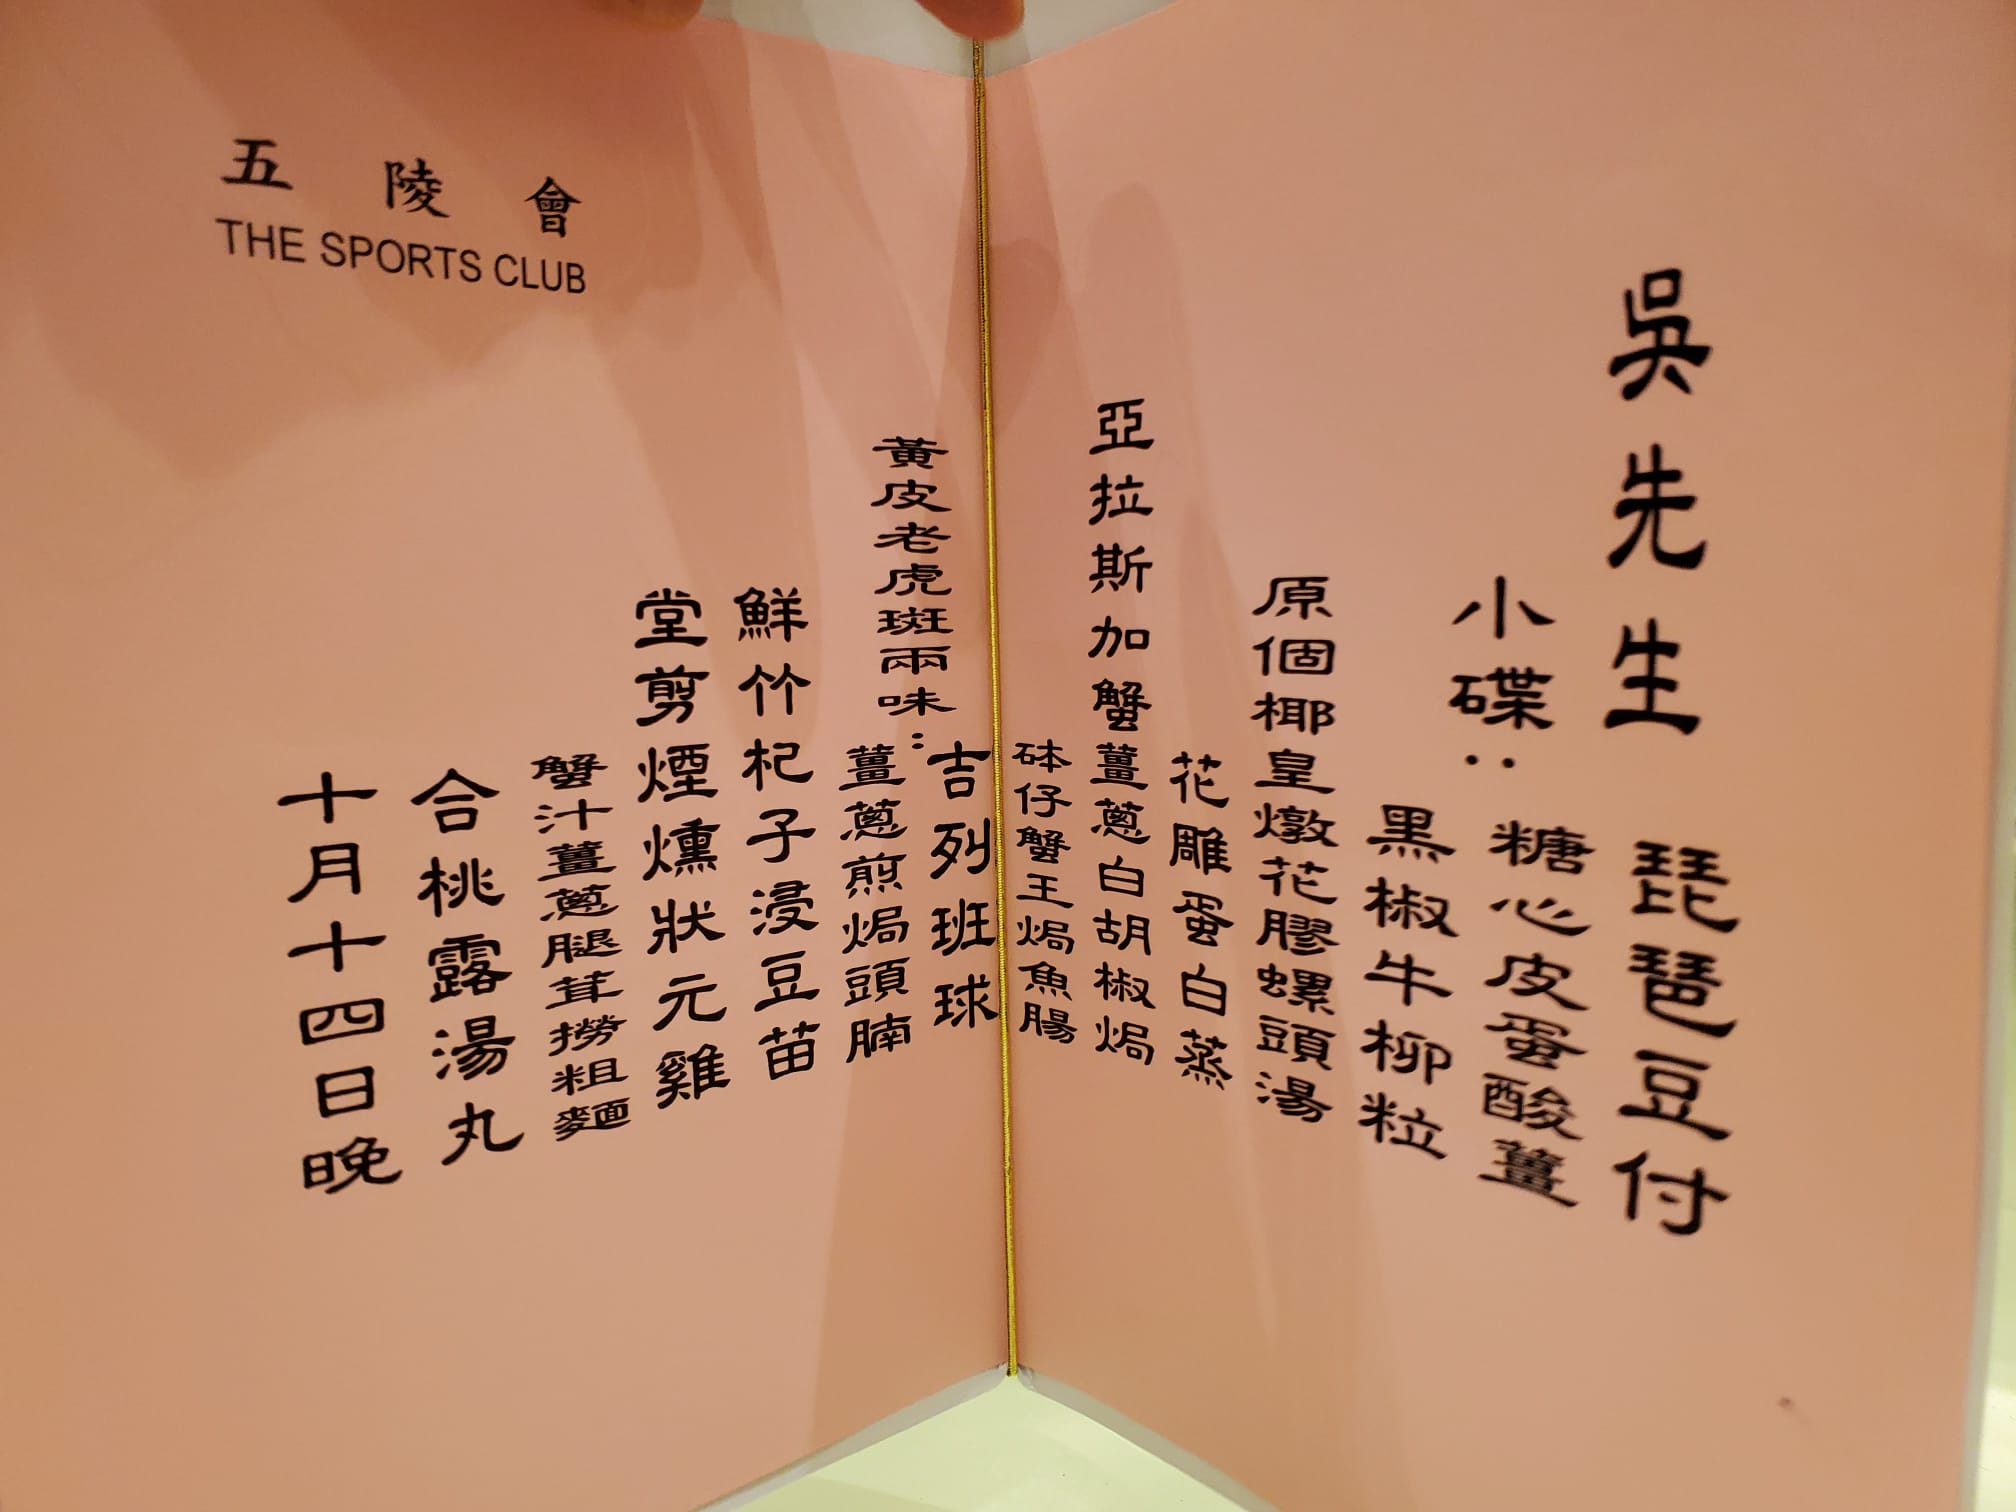 吳先生
琵琶豆付
小碟：糖心皮蛋酸薑
黑椒牛柳粒
原個椰皇燉花膠螺頭湯
花雕蛋白蒸
亞拉斯加蟹薑蔥白胡椒焗
砵仔蟹王焗魚腸
吉列班球
黃皮老虎斑兩味：
薑蔥煎焗頭腩
鮮竹杞子浸豆苗
堂剪煙燻狀元雞
蟹汁薑蔥腿茸撈粗麵
合桃露湯丸
十月十四日晚
五陵會
THE SPORTS CLUB